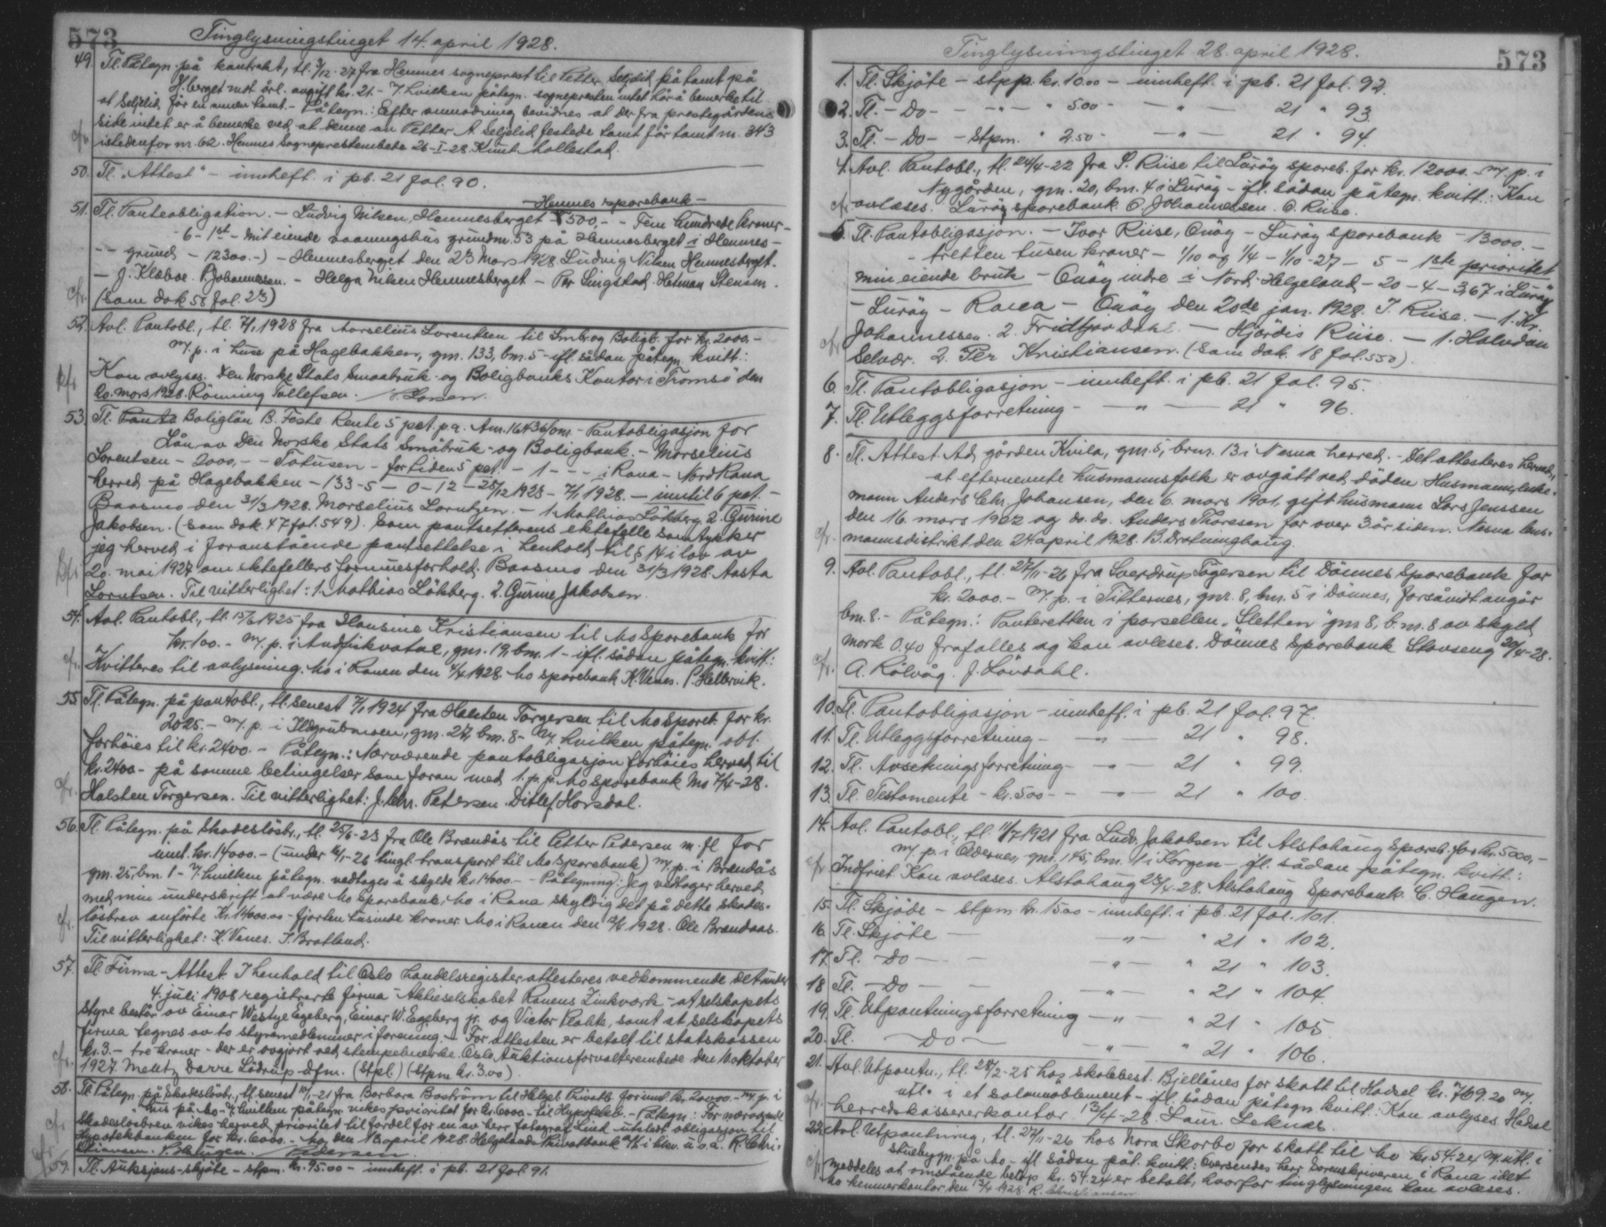 573 Tinglysningstinget 14. april 1928.
49. Tl. Påtegn. på kontrakt, tl. 3/12-27 fra Hemnes sogneprest til Petter Seljelid på tomt på
H.berget mot årl. avgift kr. 21.- 7 hvilken påtegn. sognepresten intet har å bemerke til
at Seljelid får en annen tomt. - Påtegn.: Efter anmodning bevidnes at der fra prestegårdens
side intet er å bemerke ved at denne av Petter A. Seljelid festede tomt får tomt nr. 343
istedenfor nr. 62. Hemnes Sogneprestembete 26-I-28. Knut Mollestad.
50. Tl. "Attest" - innheft. i pb. 21 fol. 90.
- Hemnes sparebank -
51. Tl. Panteobligation. - Ludvig Nilsen, Hemnesberget - 500,- - Fem hundrede kroner -
- 6 - 1ste - mit eiende vaaningshus grundnr. 53 på Hemnesberget i Hemnes -
- - grund - 12300.-) - Hemnesberget den 23 mars 1928 Ludvig Nilsen Hemnesberget.
- J. Klæboe. P. Johannessen. - Helga Nilsen Hemnesberget - Per Singstad. Herman Stensen.
(Som dok 58 fol. 28)
52. Avl. Pantobl., tl. 7/1 1928 fra Morselius Lorentsen til Småbr. og Boligb. for kr. 2000,-
m/p. i huse på Hagebakken, gnr. 133, bnr. 5 - ifl. sådan påtegn. kvitt.:
Kan avlyses. Den Norske Stats Smaabruk- og Boligbanks Kontor i Tromsö den
20. mars 1928. Rönning Tollefsen.
53. Tl. Boliglån B. Faste Rente 5 pct. p.a. Pantobligasjon for
Lån av Den Norske Stats Småbruk- og Boligbank. - Morselius
Lorentsen - 2000,- - Totusen - for tiden 5 pct - 1 - - - i Rana - Nord Rana
herred på Hagebakken - 133-5 - 0-12 - 28/12 1928 - 7/1 1928. - inntil 6 pct. -
Baasmo den 31/3 1928. Morselius Lorentzen. - 1. Mathias Lökberg. 2. Gurine
Jakobsen. (Som dok. 47 fol. 549). Som pantsetterens ektefelle samtykker
jeg herved i foranstående pantsettelse i henhold til § 14 i lov av
20. mai 1927 om ektefellers formuesforhold. Baasmo den 31/3 1928. Aasta
Lorntsen. Til vitterlighet: 1. Mathias Lökberg. 2. Gurine Jakobsen.
54. Avl. Pantobl., tl. 15/7 1925 fra Hansine Kristiansen til Mo Sparebank for
kr. 100.- m/p. i Andfiskvatne, gnr. 19, bnr. 1 - ifl. sådan påtegn. kvitt.:
Kvitteres til avlysning. Mo i Ranen den 4/4 1928. Mo sparebank K. Venes. P. Hellervik.
55. Tl. Påtegn. på pantobl., tl. senest 7/1 1924 fra Halsten Torgersen til Mo Spareb. for kr.
2025.- m/p. i Ildgrubmoen, gnr. 24, bnr. 8 - 7 hvilken påtegn. obl.
forhöies til kr. 2400.- Påtegn.: Nærværende pantobligasjon forhöies herved til
kr. 2400.- på samme betingelser som foran med 1. p.p. Mo Sparebank Mo 7/4-28.
Halsten Torgersen. Til vitterlighet: J. Chr. Petersen. Ditlef Horsdal.
56. Tl. Påtegn. på Skadeslösbr., tl. 25/6-23 fra Ole Brendås til Petter Pedersen m. fl. for
inntl. kr. 14000.- (under 6/1-26 tingl. transport til Mo Sparebank) m/p. i Brendås
gnr. 25, bnr. 1 - 7 hvilken påtegn. vedtages å skylde kr. 14000.- Påtegning: Jeg vedtager herved
med min underskrift at være Mo Sparebank, Mo i Rana skyldig det på dette skades-
lösbrev anförte kr. 14000.00 - fjorten tusinde kroner. Mo i Ranen den 1928. Ole Brendaas.
Til vitterlighet: K. Venes. P. Bratland.
57. Tl. Firma-Attest. I henhold til Oslo handelsregister attesteres vedkommende det under
4. juli 1908 registrerte firma - Aktieselskabet Ranens Zinkværk - at selskapets
styre består av Einar Westye Egeberg, Einar W. Egeberg jr. og Victor Plahte, samt at selskapets
firma tegnes av to styremedlemmer i forening. - For attesten er betalt til statskassen
kr. 3.- tre kroner - der er avgjort ved stempelmerke. Oslo Auktionsforvalterembede den 10 oktober
1927. Meltz Darre Lödrup - Dfm. (Stpl.) (Stpm. kr. 3.00).
58. Tl. Påtegn. på Skadeslösbr., tl. senest 10/1-21 fra Barbara Boström til Helgel. Privatb. for inntl. kr. 20000.- m/p. i
hus på Mo - 7 hvilken påtegn. vikes prioritet for kr. 6000.- til Hypotekb. - Påtegn.: For nærværende
skadeslösbrev vikes herved prioritet til fordel for en av herr fotograf Lind utstedt obligasjon til
Hypotekbanken for kr. 6000.- Mo den 13 april 1928. Helgelands Privatbank A/S i likv. u.o.a. R. Chri-
stiansen.
59. Tl. Auksjons-skjöte - stpm. kr. 75.00 - innheft. i pb. 21 fol. 91.
Tinglysningstinget 28. april 1928. 573
1. Tl. Skjöte - stpp. kr. 10.00 - innheft. i pb. 21 fol. 92.
2. Tl. - Do - - " - " 5.00 - - " - 21 " 93
3. Tl. - Do - - Stpm. " 2.50 - - " - 21 " 94.
4. Avl. Pantobl., tl. 24/4-22 fra P. Riise til Luröy spareb. for kr. 12000.- m/p. i
Nygården, gnr. 20, bnr. 4 i Luröy - ifl. sådan påtegn. kvitt.: Kan
avlæses. Luröy sparebank. O. Johannessen. O. Riise.
5. Tl. Pantobligasjon. - Ivar Riise, Onöy - Luröy sparebank - 13000.-
- tretten tusen kroner - 1/10 og 1/4 - 1/10-27 - 5 - 1ste prioritet
min eiende bruk - Onöy indre i Nord-Helgeland - 20 - 4 - 3,67 i Luröy
- Luröy - Ranea - Onöy den 20de jan. 1928. I. Riise. - 1. Kr.
Johannessen. 2. Fridtjov Dahl. - Hjördis Riise. - 1. Halvdan
Selvær. 2. Per Kristiansen. (Som dok. 18 fol. 550).
6. Tl. Pantobligasjon - innheft. i pb. 21 fol. 95.
7. Tl. Utleggsforretning - - " - 21 " 96.
8. Tl. Attest. Ad. gården Kvila, gnr. 5, brnr. 13 i Nesna herred. - Det attesteres herved,
at efternevnte husmannsfolk er avgått ved döden Husmann, enke-
mann Anders Chr. Johansen, den 6. mars 1901, gift husmann Lars Jenssen
den 16. mars 1902 og do. do. Anders Thoresen for over 3 år siden. Nesna lens-
mannsdistrikt den 24 april 1928. B. Dröhunghaug.
9. Avl. Pantobl., tl. 27/11-26 fra Sverdrup Togersen til Dönnes Sparebank for
kr. 2000.- m/p. i Titternes, gnr. 8, bnr. 5 i Dönnes, forsåvidt angår
bnr. 8. - Påtegn.: Panteretten i parsellen "Sletten" gnr. 8, b.nr. 8 av skyld
mark 0.40 frafalles og kan avleses. Dönnes Sparebank Stavseng 20/4-28.
A. Rölvåg. J. Lövdahl.
10. Tl. Pantobligasjon - innheft. i pb. 21 fol. 97.
11. Tl. Utleggsforretning - - " - 21 " 98.
12. Tl. Avsetningsforretning - - " - 21 " 99.
13. Tl. Testamente - kr. 5.00 - - " - 21 " 100
14. Avl. Pantobl., tl. 11/7 1921 fra Ludv. Jakobsen til Alstahaug Spareb. for kr. 5000,-
m/p. i Ödernes, gnr. 145, bnr. 1 i Korgen - ifl. sådan påtegn. kvitt.:
Indfriet. Kan avlæses. Alstahaug 23/4-28. Alstahaug Sparebank. C. Haugen.
15. Tl. Skjöte - stpm. kr. 15.00 - innheft. i pb. 21 fol. 101.
16. Tl. Skjöte - - " - " 21 " 102.
17. Tl. - Do - - " - " 21 " 103.
18. Tl. - Do - - " - " 21 " 104.
19. Tl. Utpantningsforretning - " - " 21 " 105
20. Tl. - Do - - " - " 21 " 106.
21. Avl. Utpantn., tl. 28/2-25 hos skolebest. Bjellånes for skatt til Hadsel kr. 769.20 m/
utl. i et salonmöblement - ifl. sådan påtegn. kvitt.: Kan avlyses. Hadsel
herredskassererkontor 12/4-28 Laur. Leknes.
22. Avl. Utpantning, tl. 27/11-26 hos Nora Skorbo for skatt til Mo kr. 54.24 m/utl. i
stuebygn. på Mo - ifl. sådan påt. kvitt.: Oversendes herr Sorenskriveren i Rana idet
meddeles at omstående beløp kr. 54.24 er betalt, hvorfor tinglysningen kan avleses.
Mo kemnerkontor, den 13/4 1928. R. Christiansen